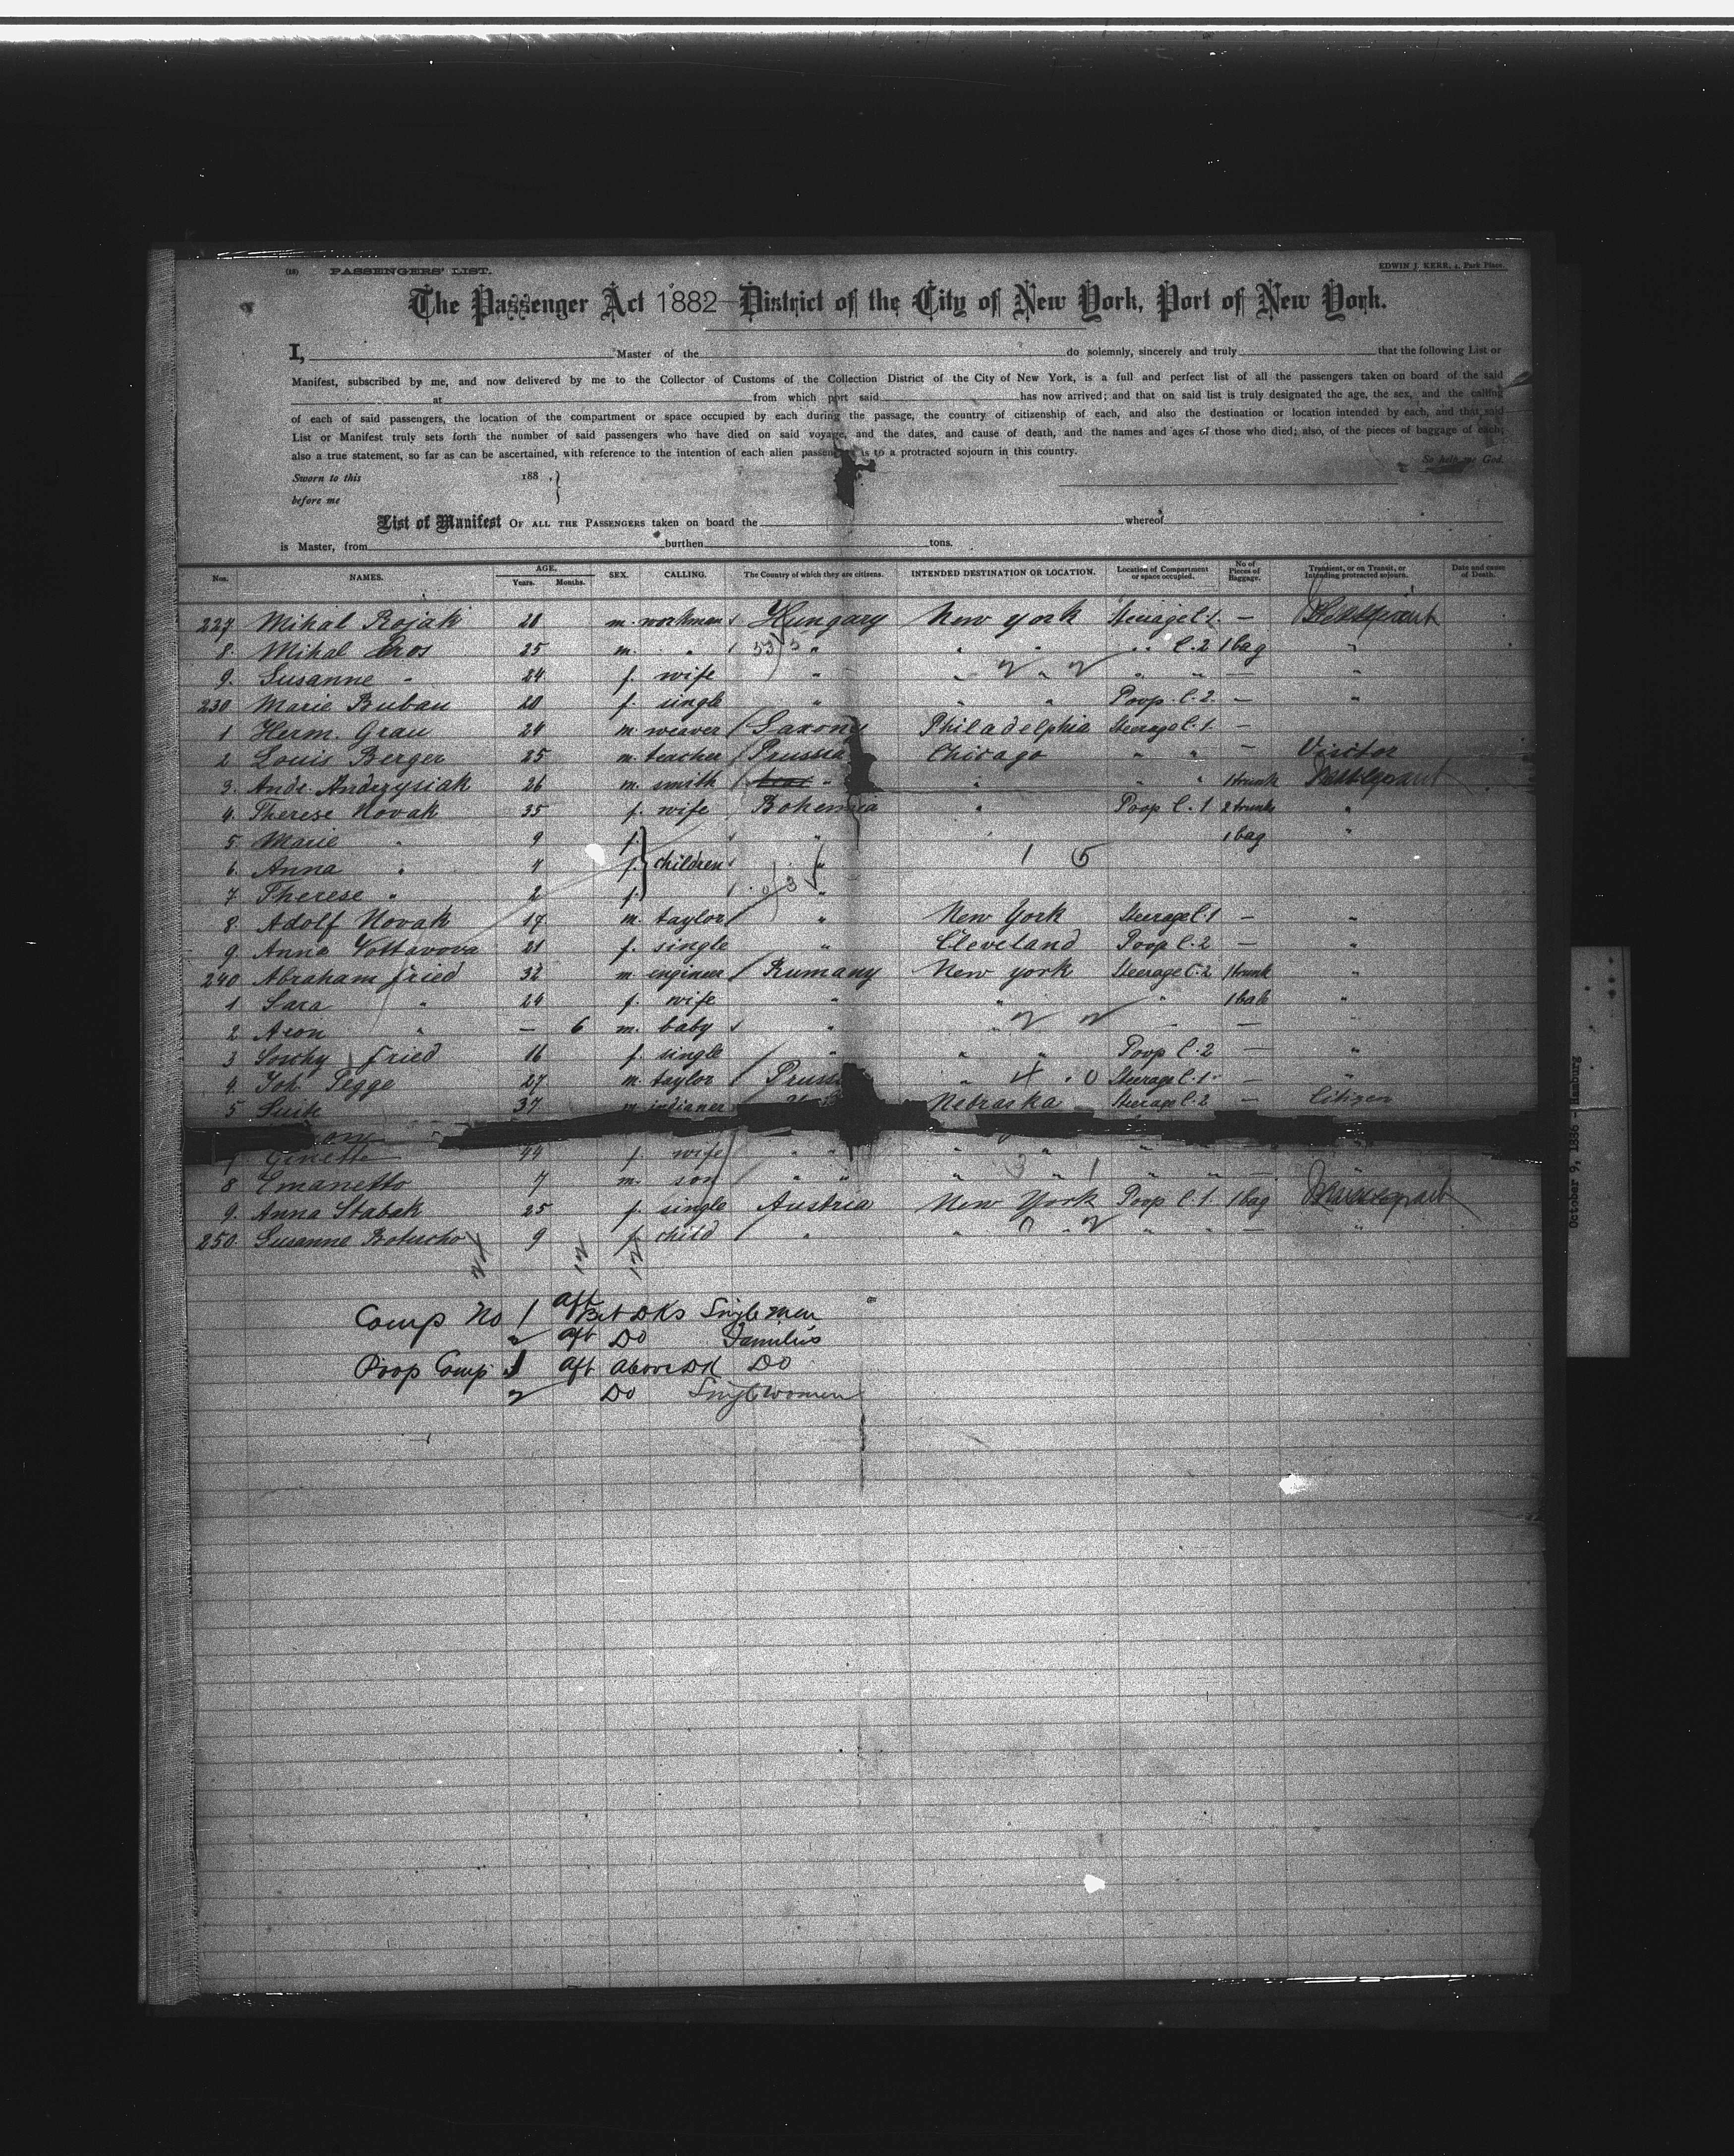 (18) PASSENGERS' LIST. EDWIN J. KERR, 4, Park Place.
The Passenger Act 1882 District of the City of New York, Port of New York.
I, Master of the do solemnly, sincerely and truly that the following List or
Manifest, subscribed by me, and now delivered by me to the Collector of Customs of the Collection District of the City of New York, is a full and perfect list of all the passengers taken on board of the said
at from which port said has now arrived; and that on said list is truly designated the age, the sex, and the calling
of each of said passengers, the location of the compartment or space occupied by each during the passage, the country of citizenship of each, and also the destination or location intended by each, and that said
List or Manifest truly sets forth the number of said passengers who have died on said voyage, and the dates, and cause of death, and the names and ages of those who died; also, of the pieces of baggage of each;
also a true statement, so far as can be ascertained, with reference to the intention of each alien passenger as to a protracted sojourn in this country. So help me God.
Sworn to this 188 .
before me
List of Manifest OF ALL THE PASSENGERS taken on board the whereof
is Master, from burthen tons.
Nos. NAMES. AGE. Years. Months. SEX. CALLING. The Country of which they are citizens. INTENDED DESTINATION OR LOCATION. Location of Compartment or space occupied. No of Pieces of Baggage. Transient, or on Transit, or Intending protracted sojourn. Date and cause of Death.
227 Mihal Rojak 28 m. workman Hungary New York Steerage C.1. —
8. Mihal Oros 25 m. " " " " " C.2 1 bag "
9. Susanne " 24 f. wife " " " " " — "
230 Marie Buban 20 f. single " " " Poop. C.2. — "
1 Herm. Grau 24 m weaver Saxony Philadelphia Steerage C.1. —
2 Louis Berger 25 m. teacher Prussia Chicago " " — Visitor
3. Andr. Andrzysiak 26 m. smith " " " " 1 trunk
4. Therese Novak 35 f. wife Bohemia " Poop C.1 2 trunks "
5 Marie " 9 f. children " " 1 bag "
6. Anna " 4 f. " 1 5
7 Therese " 2 f. "
8. Adolf Novak 17 m. taylor " New York Steerage C.1 — "
9. Anna Vottavova 21 f. single " Cleveland Poop C.2 — "
240 Abraham Fried 32 m engineer Rumany New York Steerage C.2 1 trunk "
1 Sara " 24 f. wife " " " 1 bak "
2 Aron " — 6 m. baby " " —
3 Fried 16 f. single " " " Poop C.2 — "
4. Joh. Pegge 27 m. taylor Pruss " 4 . 0 Steerage C.1. — "
5 37 m indianer Nebraska Steerage C.2 — Citizen
44 f. wife " " " "
8 Emanetto 7 m. son " " " " " " —
9. Anna Stabak 25 f. single Austria New York Poop C.1. 1 bag
250 Susanna 9 f. child " " " " " — "
Comp No 1 aft Bet Dks Single men
2 aft Do Families
Poop Comp 1 aft above Dk Do
2 Do Single women
October 9, 1886 - Hamburg